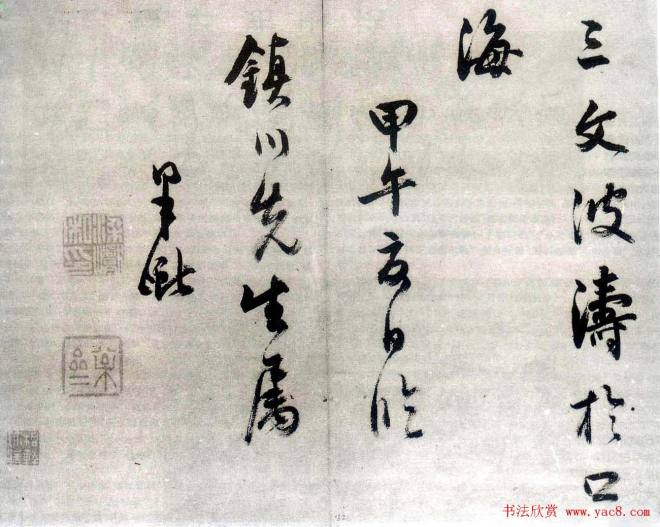 三文波濤於口
海
甲午夏日臨
鎮川先生属
书法欣赏 www.yac8.com